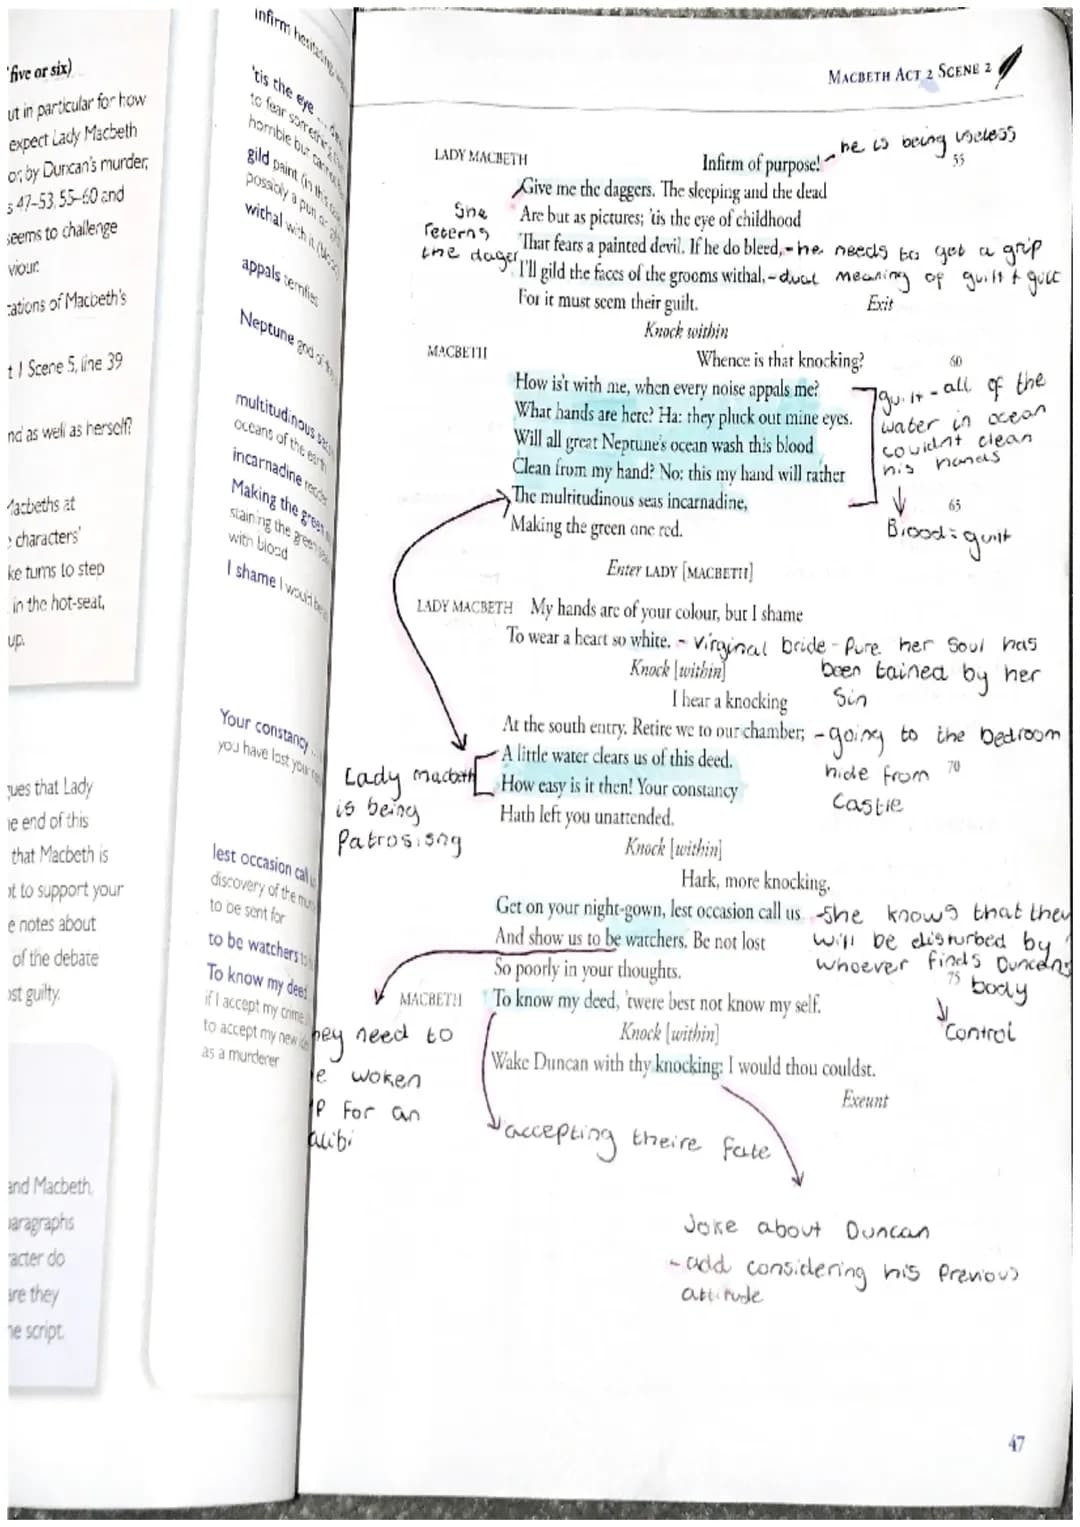 five or six)
ut in particular for how
expect Lady Macbeth
or, by Duncan's murder,
s 47–53, 55–60 and
seems to challenge
viour.
cations of Macbeth's
t 1 Scene 5, line 39
nd as well as herself?
Macbeths at
characters'
ke turns to step
in the hot-seat,
up.
gues that Lady
e end of this
that Macbeth is
ot to support your
e notes about
of the debate
ost guilty.
and Macbeth,
paragraphs
acter do
are they
he script.
infirm hesitating
'tis the eye ...
to fear something
horrible but cannot
gild paint (in this
possibly a pun on
withal with it
appals terrifies
Neptune god of the
multitudinous seas
oceans of the earth
incarnadine redden
Making the green
staining the green
with blood
I shame I would be
Your constancy ...
you have lost your
lest occasion call us
discovery of the
to be sent for
to be watchers
To know my deed
if I accept my crime,
to accept my new
as a murderer
MACBETH ACT 2 SCENE 2
LADY MACBETH Infirm of purpose! - he is being useless
55
Give me the daggers. The sleeping and the dead
Are but as pictures; 'tis the eye of childhood
She
reterns
the dager
That fears a painted devil. If he do bleed, - he needs to get a grip
I'll gild the faces of the grooms withal, - dual meaning of guilt + guilt
For it must seem their guilt. Exit
Knock within
MACBETH Whence is that knocking?
60
How is't with me, when every noise appals me?
What hands are here? Ha: they pluck out mine eyes.
Will all great Neptune's ocean wash this blood
Clean from my hand? No: this my hand will rather
The multitudinous seas incarnadine,
65
Making the green one red.
guilt - all of the
water in ocean
couldnt clean
his hands
Blood = guilt
Enter LADY [MACBETH]
LADY MACBETH My hands are of your colour, but I shame
To wear a heart so white. - virginal bride - Pure her Soul has
been tained by her
Sin
Knock [within]
I hear a knocking
At the south entry. Retire we to our chamber; - going to the bedroom
hide from
Castle
70
A little water clears us of this deed.
How easy is it then! Your constancy
Hath left you unattended.
Lady macbeth
is being
Patrosisng
Knock [within]
Hark, more knocking.
Get on your night-gown, lest occasion call us - She knows that they
And show us to be watchers. Be not lost will be disturbed by
So poorly in your thoughts. whoever finds Duncans
75
body
Control
MACBETH To know my deed, 'twere best not know my self.
Knock [within]
Wake Duncan with thy knocking: I would thou couldst.
Exeunt
hey need to
e woken
P for an
alibi
accepting theire fate
Joke about Duncan
- add considering his Previous
attitude
47